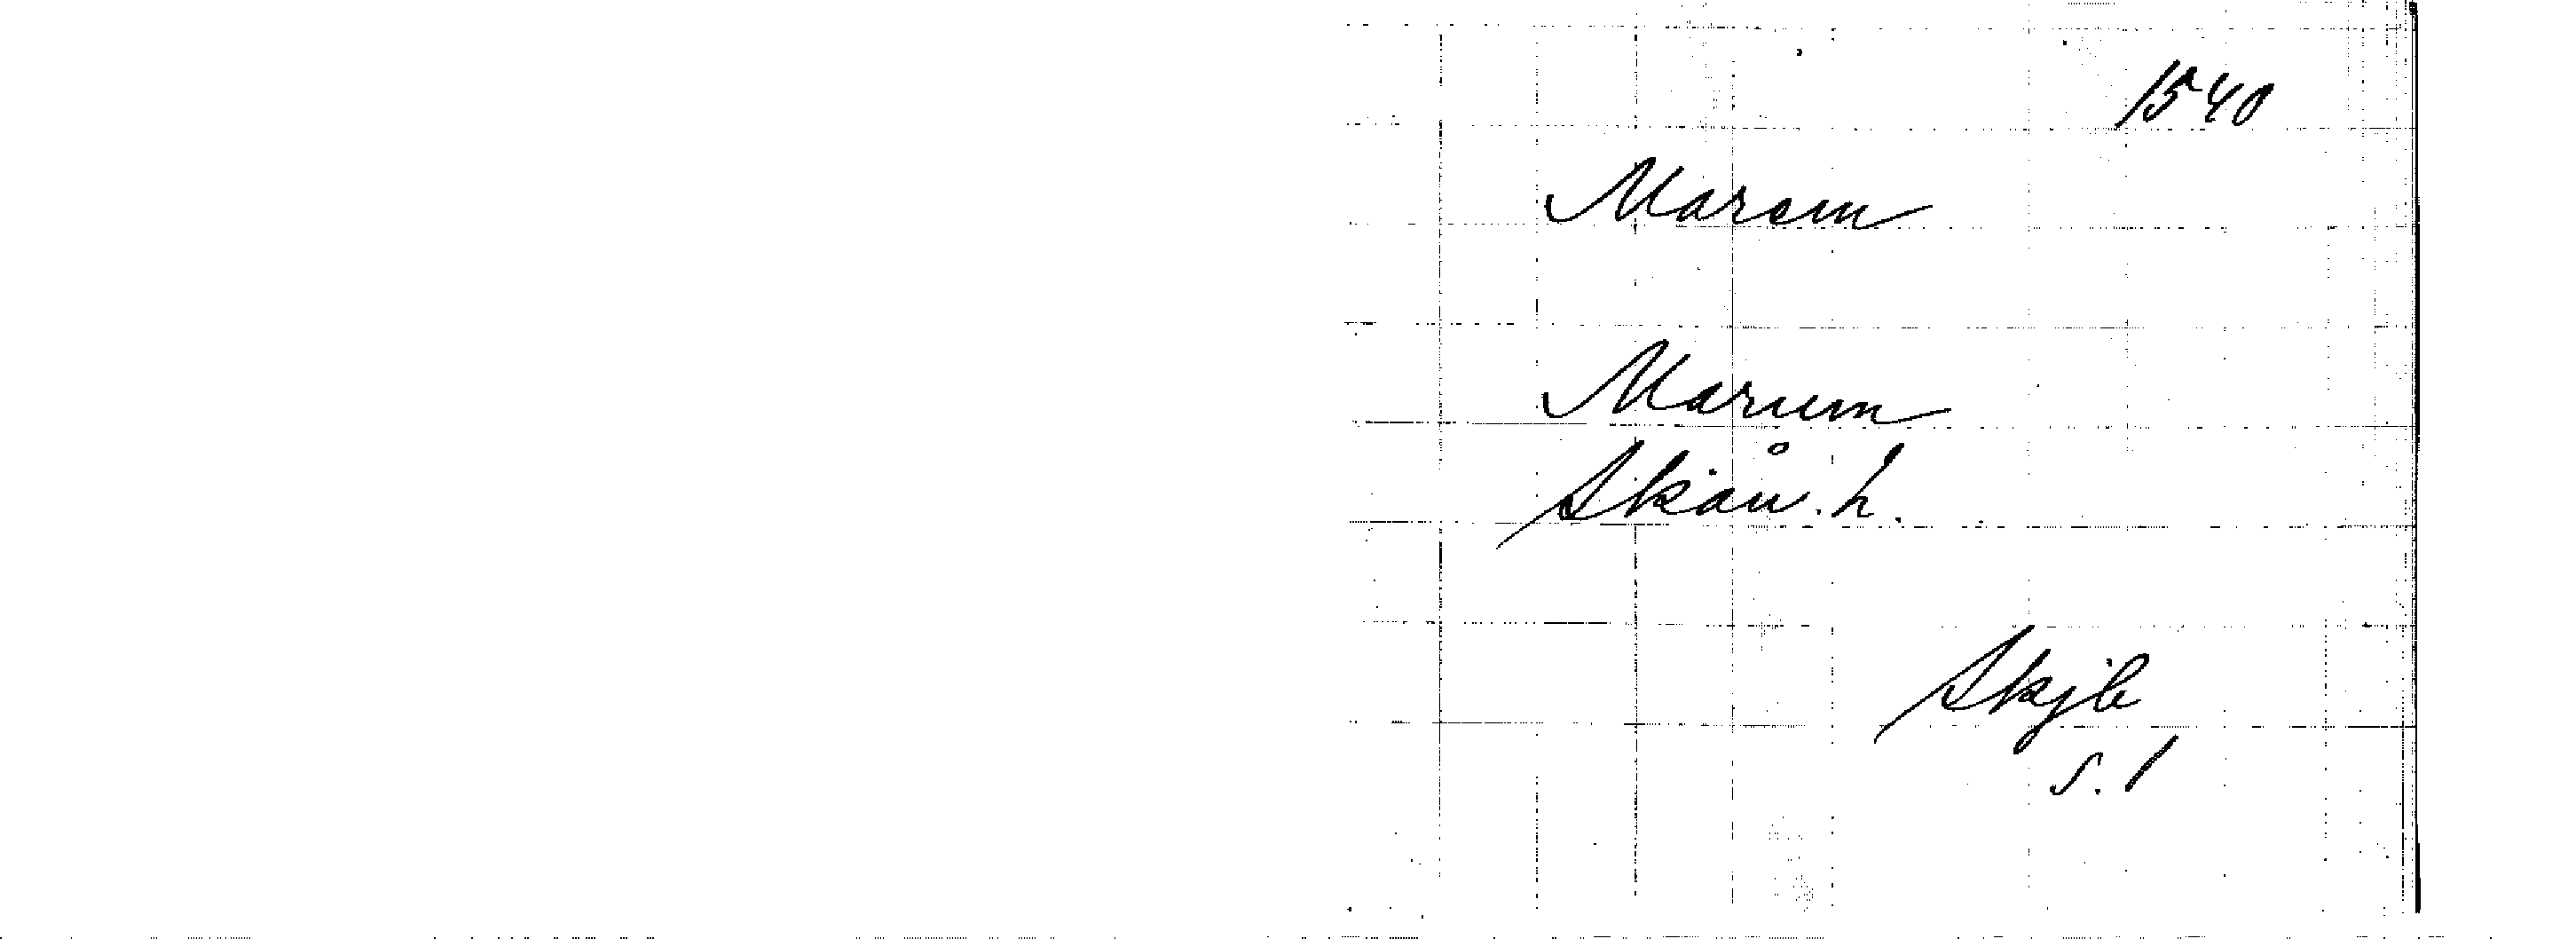 1540
Marem
Marum
Skån. h.
Skjb
s. 1